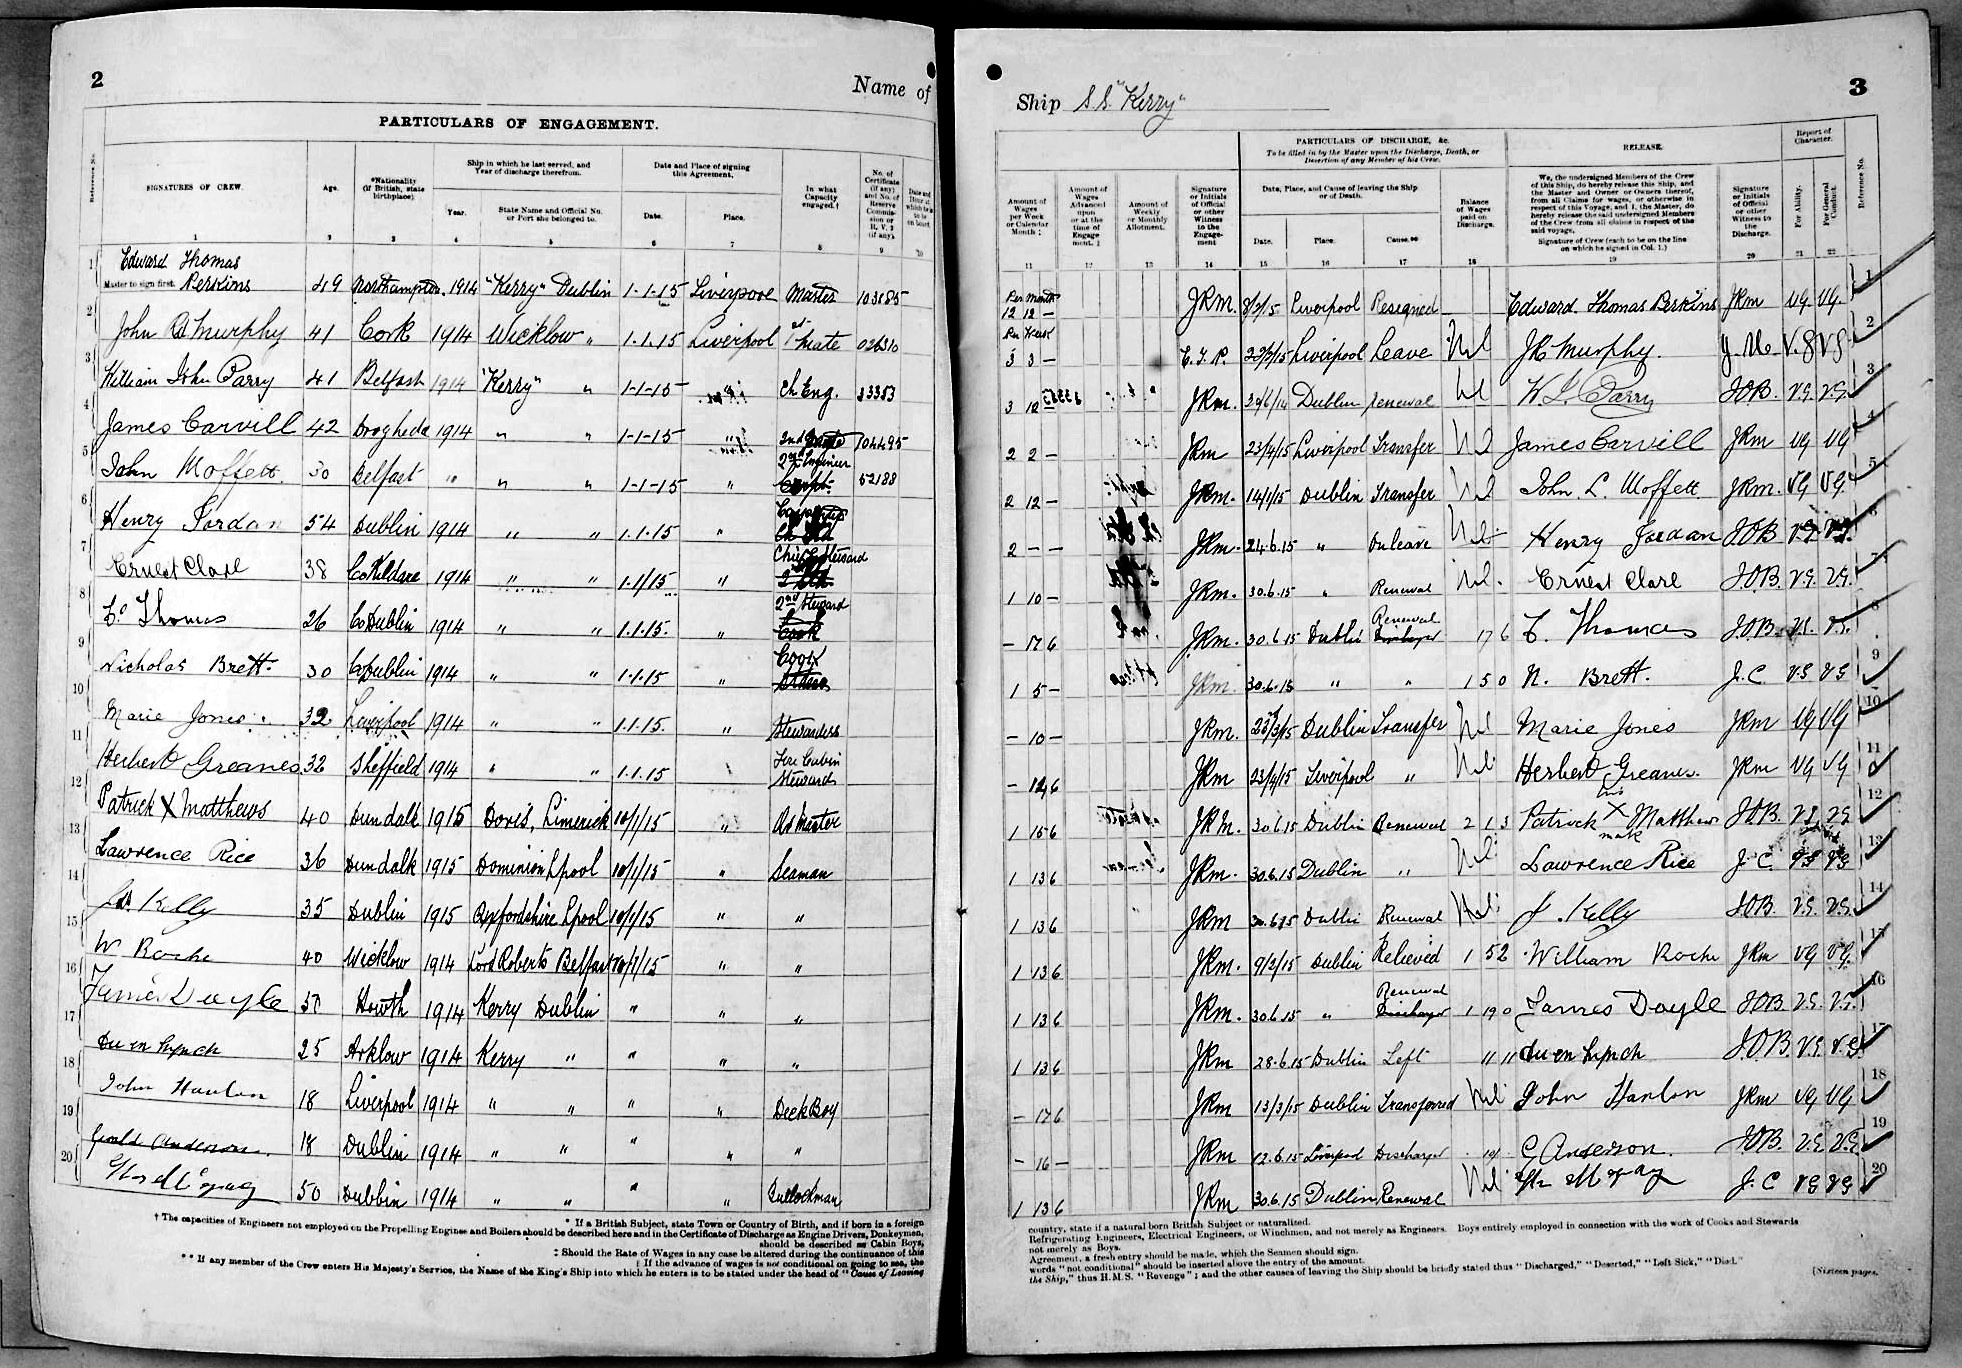 2
Name of
PARTICULARS OF ENGAGEMENT.
Reference No.
SIGNATURES OF CREW.
Age.
*Nationality (if British, state birthplace).
Ship in which he last served, and Year of discharge therefrom.
Year.
State Name and Official No. or Port she belonged to.
Date and Place of signing this Agreement.
Date.
Place.
In what Capacity engaged.†
No. of Certificate (if any) and No. of Reserve Commission or R.V.2 (if any).
1 2 3 4 5 6 7 8 9 10
1 Edward Thomas
Master to sign first. Perkins 49 Northampton 1914 "Kerry" Dublin 1-1-15 Liverpool Master 103185
2 John Murphy 41 Cork 1914 Wicklow " 1.1.15 Liverpool 1st Mate 026310
3 William John Parry 41 Belfast 1914 "Kerry" " 1-1-15 " Ch Eng. 33353
4 James Carvill 42 Drogheda 1914 " " 1-1-15 " 2nd Mate 104495
5 John Moffett 30 Belfast " " " 1-1-15 " 2nd Engineer 52188
6 Henry Jordan 54 Dublin 1914 " " 1.1.15 "
7 Ernest Clare 38 Co Kildare 1914 " " 1.1/15 " Chief Steward
8 Thomas 26 Co Dublin 1914 " " 1.1.15. " 2nd Steward
9 Nicholas Brett. 30 Co Dublin 1914 " " 1.1.15 " Cook
10 Marie Jones 32 Liverpool 1914 " " 1.1.15. " Stewardess
11 Herbert Greaves 32 Sheffield 1914 " " 1.1.15 Fore Cabin Steward
12 Patrick X Matthews 40 Dundalk 1915 Doris, Limerick 10/1/15 "
13 Lawrence Rice 36 Dundalk 1915 Dominion Lpool 10/1/15 " Seaman
14 Kelly 35 Dublin 1915 Oxfordshire Lpool 10/1/15 " "
15 W Roche 40 Wicklow 1914 Lord Roberts Belfast 10/1/15 " "
16 James Doyle Howth 1914 Kerry Dublin " " "
17 Owen Lynch 25 Arklow 1914 Kerry " " " "
18 John Hanlon 18 Liverpool 1914 " " " " Deck Boy
19 Gerald Anderson. 18 Dublin 1914 " " " " "
20 50 Dublin 1914 " " " " Bullockman
* If a British Subject, state Town or Country of Birth, and if born in a foreign
† The capacities of Engineers not employed on the Propelling Engines and Boilers should be described here and in the Certificate of Discharge as Engine Drivers, Donkeymen,
should be described as Cabin Boys,
‡ Should the Rate of Wages in any case be altered during the continuance of this
† If the advance of wages is not conditional on going to sea, the
** If any member of the Crew enters His Majesty's Service, the Name of the King's Ship into which he enters is to be stated under the head of "Cause of Leaving
3
Ship S.S. "Kerry"
PARTICULARS OF DISCHARGE, &c.
To be filled in by the Master upon the Discharge, Death, or Desertion of any Member of his Crew.
RELEASE.
Report of Character.
Amount of Wages per Week or Calendar Month ‡
Amount of Wages Advanced upon or at the time of Engagement. ‡
Amount of Weekly or Monthly Allotment.
Signature or Initials of Official or other Witness to the Engagement
Date, Place, and Cause of leaving the Ship or of Death.
Date. Place. Cause.**
Balance of Wages paid on Discharge.
We, the undersigned Members of the Crew of this Ship, do hereby release this Ship, and the Master and Owner or Owners thereof, from all Claims for wages, or otherwise in respect of this Voyage, and I, the Master, do hereby release the said undersigned Members of the Crew from all claims in respect of the said voyage.
Signature of Crew (each to be on the line on which he signed in Col. 1.)
Signature or Initials of Official or other Witness to the Discharge.
For Ability.
For General Conduct.
Reference No.
11 12 13 14 15 16 17 18 19 20 21 22
Per Month
12 12 — JRm. 8/3/15 Liverpool Resigned — Edward Thomas Perkins JRm VG. VG. 1
Per Week
3 3 — 22/5/15 Liverpool Leave Nil Murphy. V.G VG 2
3 10 — JRm. 30/6/14 Dublin renewal Nil W J. Parry JOB. V.G. V.G. 3
2 2 — JRm 23/4/15 Liverpool Transfer Nil James Carvill JRm VG VG 4
2 12 — JRm. 14/1/15 Dublin Transfer Nil John L. Moffett JRm. VG VG. 5
2 — — JRm. 24.6.15 " On leave Nil Henry Jordan JOB V.G V.G. 6
1 10 — JRm. 30.6.15 " Renewal Nil. Ernest Clare J.O.B. V.G. V.G. 7
— 17 6 JRm. 30.6.15 Dublin Renewal 17 6 Thomas J.O.B. V.G. V.G. 8
1 5 — JRm. 30.6.15 " " 1 5 0 N. Brett. J.C. VG VG 9
— 10 — JRm. Dublin Transfer Nil Marie Jones JRm VG VG 10
— JRm 23/4/15 Liverpool " Nil Herbert Greaves. JRm VG VG 11
1 15 6 JRM. 30.6.15 Dublin Renewal 2 1 3 Patrick his X mark Matthews JOB. V.G V.G. 12
1 13 6 JRm. 30.6.15 Dublin " Nil Lawrence Rice J.C. VG VG 13
1 13 6 JRm 30.6.15 Dublin Renewal Nil J. Kelly JOB. V.G. V.G. 14
1 13 6 JRm. 9/2/15 Dublin Relieved 1 5 2 William Roche JRm VG VG. 15
1 13 6 JRm. 30.6.15 " Renewal 1 19 0 James Doyle JOB. V.G. V.G. 16
1 13 6 JRm 28.6.15 Dublin Left " " Owen Lynch J.O.B. V.G. V.G. 17
— 17 6 JRm 13/3/15 Dublin Transferred Nil John Hanlon JRm VG VG 18
— 16 — JRm 12.6.15 Liverpool Discharged G Anderson. JOB. V.G. V.G. 19
1 13 6 JRm 30.6.15 Dublin Renewal Nil J.C VG VG 20
country, state if a natural born British Subject or naturalized.
Refrigerating Engineers, Electrical Engineers, or Winchmen, and not merely as Engineers. Boys entirely employed in connection with the work of Cooks and Stewards
not merely as Boys.
Agreement, a fresh entry should be made, which the Seamen should sign.
words "not conditional" should be inserted above the entry of the amount.
the Ship," thus H.M.S. "Revenge"; and the other causes of leaving the Ship should be briefly stated thus "Discharged," "Deserted," "Left Sick," "Died."
(Sixteen pages.